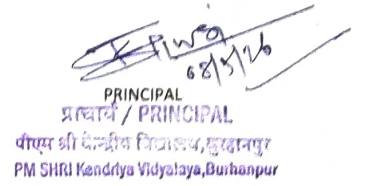 08/5/26
PRINCIPAL
प्राचार्य / PRINCIPAL
पीएम श्री केन्द्रीय विद्यालय,बुरहानपुर
PM SHRI Kendriya Vidyalaya,Burhanpur